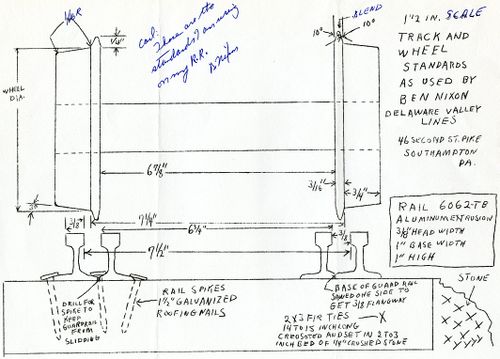 1/16 R
3/16"
1/4"
Carl:
These are the
standards I am using
on my R.R.
B. Nixon
BLEND
10°
10°
1"=1/2 IN. SCALE
TRACK AND
WHEEL
STANDARDS
AS USED BY
BEN NIXON
DELAWARE VALLEY
LINES
46 SECOND ST. PIKE
SOUTHAMPTON
PA.
WHEEL
DIA.
6 7/8"
3/16"
3/4"
3°
3/8
7 1/4"
6 3/4"
3/8
7 1/2"
RAIL 6062-T8
ALUMINUM EXTRUSION
3/8" HEAD WIDTH
1" BASE WIDTH
1" HIGH
STONE
DRILL FOR
SPIKE TO
KEEP
GUARDRAIL
FROM
SLIPPING
RAIL SPIKES
1 1/2" GALVANIZED
ROOFING NAILS
BASE OF GUARD RAIL
SAWED ONE SIDE TO
GET 3/8 FLANGWAY
2 X 3 FIR TIES
14 TO 15 INCH LONG
CREOSOTED AND SET IN 2 TO 3
INCH BED OF 1/4" CRUSHED STONE